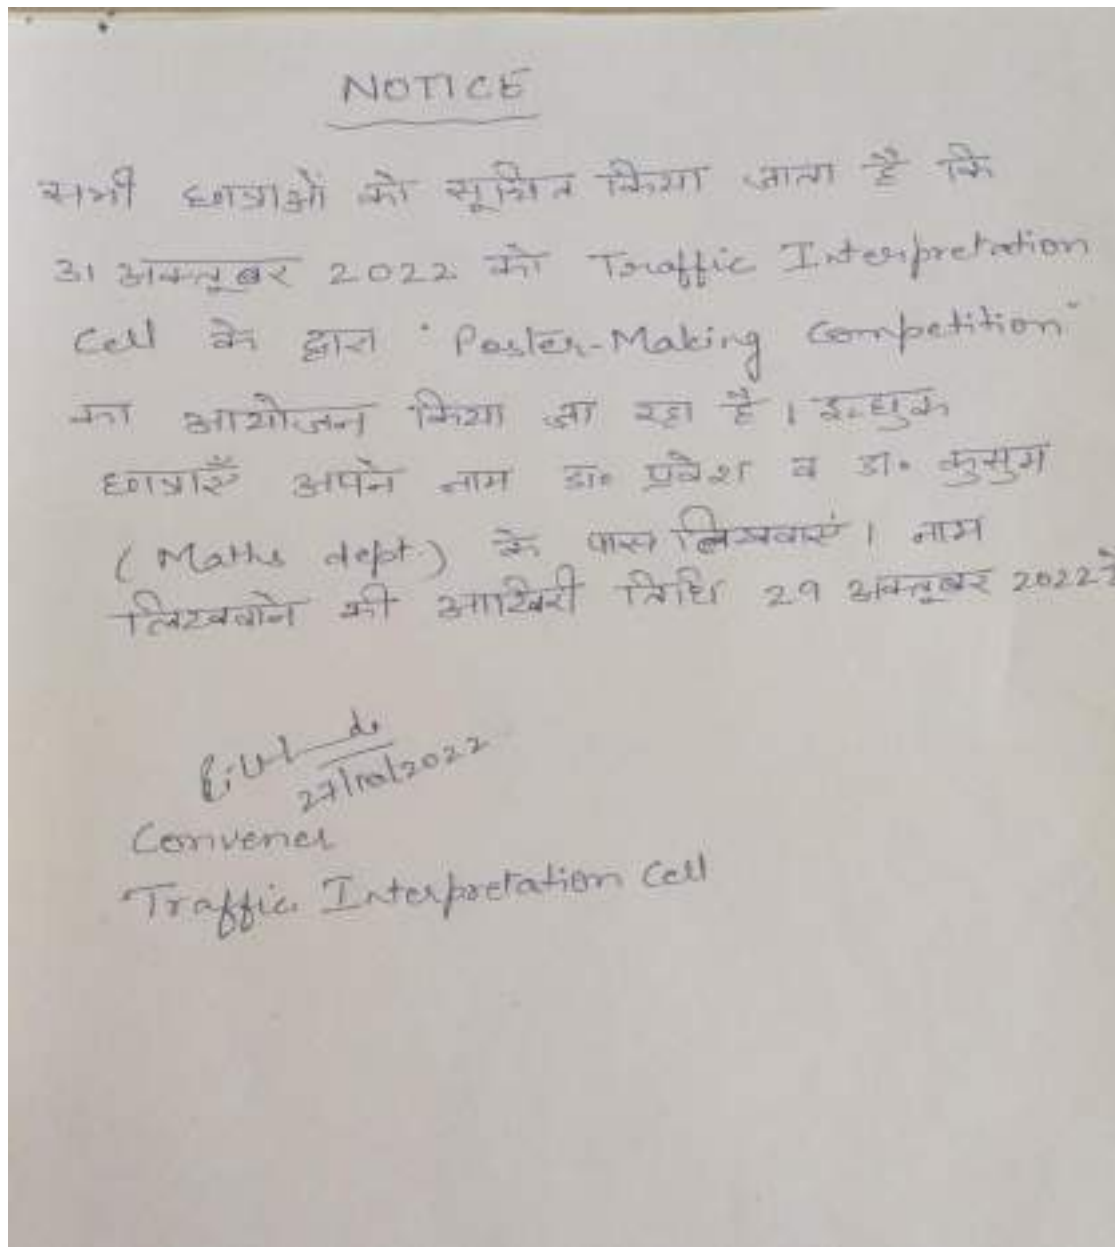 NOTICE
सभी छात्राओं को सूचित किया जाता है कि
31 अक्तूबर 2022 को Traffic Interpretation
Cell के द्वारा "Poster-Making Competition"
का आयोजन किया जा रहा है। इच्छुक
छात्राएँ अपने नाम डा० प्रवेश व डा० कुसुम
(Maths dept) के पास लिखवाएं। नाम
लिखवाने की आखिरी तिथि 29 अक्तूबर 2022 है
27/10/2022
Convener
Traffic Interpretation Cell